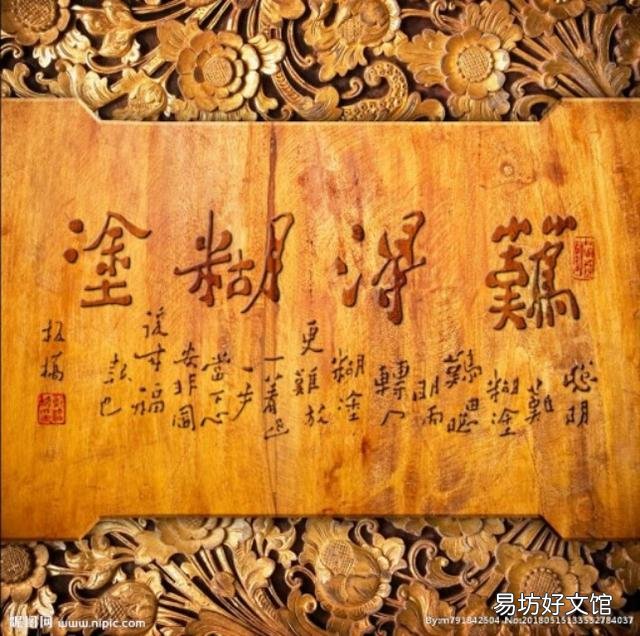 難得糊塗
聰明
難
糊塗
難由聰
明而
轉入
糊塗
更難放
一著退
一步
當下心
安非圖
後来福
報也
板橋
易坊好文馆
昵图网 www.nipic.com
By:m791842504 No:20180515133532784037